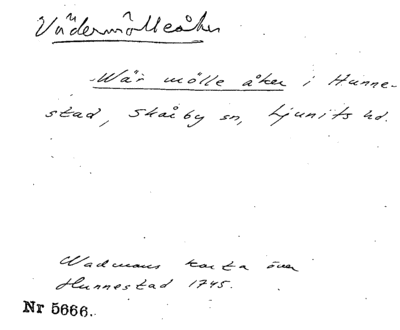 Vädermölleåker
Wär mölle åker i Hunne-
stad, Skårby sn, Ljunits hd.
Wadmans karta över
Hunnestad 1745.
Nr 5666.